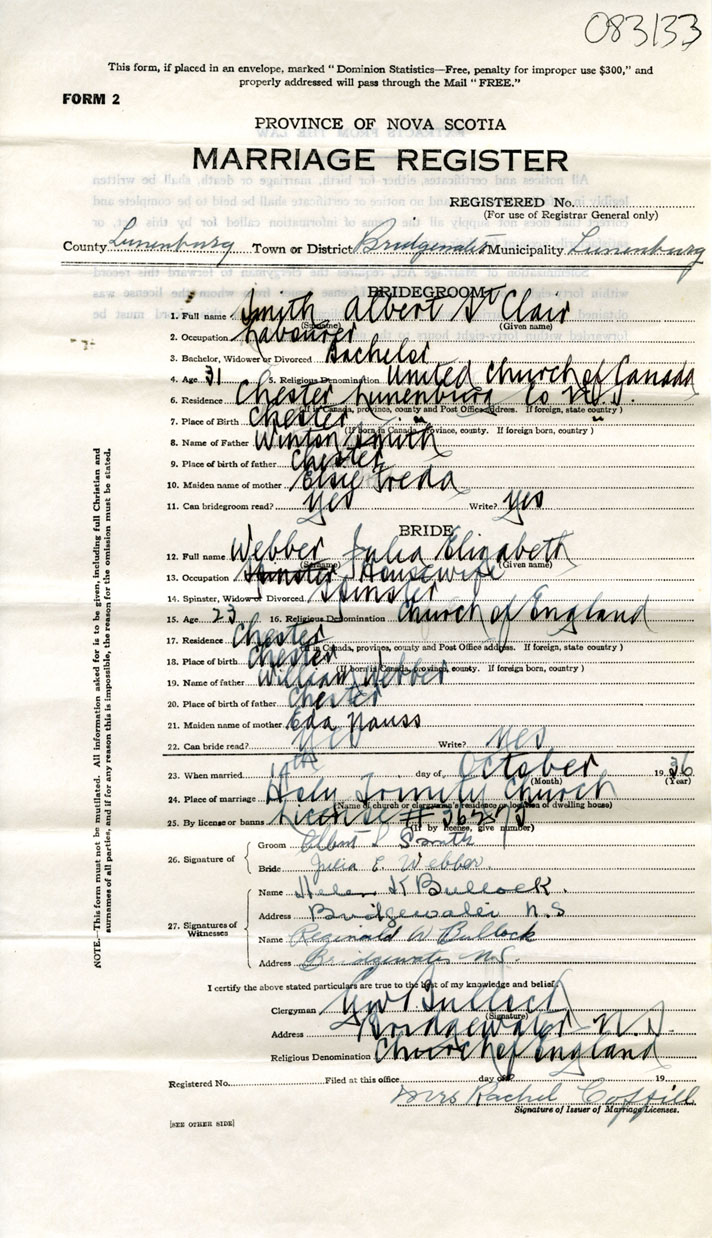 083133
This form, if placed in an envelope, marked "Dominion Statistics—Free, penalty for improper use $300," and
properly addressed will pass through the Mail "FREE."
FORM 2
PROVINCE OF NOVA SCOTIA
MARRIAGE REGISTER
REGISTERED No.
(For use of Registrar General only)
County Lunenburg Town or District Bridgewater Municipality Lunenburg
BRIDEGROOM
1. Full name Smith Albert St Clair
(Surname) (Given name)
2. Occupation Labourer
3. Bachelor, Widower or Divorced Bachelor
4. Age 31 5. Religious Denomination United Church of Canada
6. Residence Chester Lunenburg Co N.S.
(If in Canada, province, county and Post Office address. If foreign, state country)
7. Place of Birth Chester " "
(If born in Canada, province, county. If foreign born, country)
8. Name of Father Winton Smith
9. Place of birth of father Chester
10. Maiden name of mother Elsie Freda
11. Can bridegroom read? Yes Write? Yes
BRIDE
12. Full name Webber Julia Elizabeth
(Surname) (Given name)
13. Occupation Spinster Housewife
14. Spinster, Widow or Divorced Spinster
15. Age 23 16. Religious Denomination Church of England
17. Residence Chester
(If in Canada, province, county and Post Office address. If foreign, state country)
18. Place of birth Chester
(If born in Canada, province, county. If foreign born, country)
19. Name of father William Webber
20. Place of birth of father Chester
21. Maiden name of mother Eda Nauss
22. Can bride read? Yes Write? Yes
23. When married 10th day of October 1936
(Month) (Year)
24. Place of marriage Holy Trinity Church
(Name of church or clergyman's residence or location of dwelling house)
25. By license or banns License #
(If by license, give number)
26. Signature of Groom Albert S Smith
Bride Julia E. Webber.
27. Signatures of Witnesses Name Helen K Bullock.
Address Bridgewater N.S
Name Reginald W Bullock
Address Bridgewater N.S.
I certify the above stated particulars are true to the best of my knowledge and belief.
Clergyman Bullock
(Signature)
Address Bridgewater N.S.
Religious Denomination Church of England
Registered No. Filed at this office day of 19
Mrs Rachel Coffill
Signature of Issuer of Marriage Licenses.
[SEE OTHER SIDE]
NOTE.—This form must not be mutilated. All information asked for is to be given, including full Christian and
surnames of all parties, and if for any reason this is impossible, the reason for the omission must be stated.